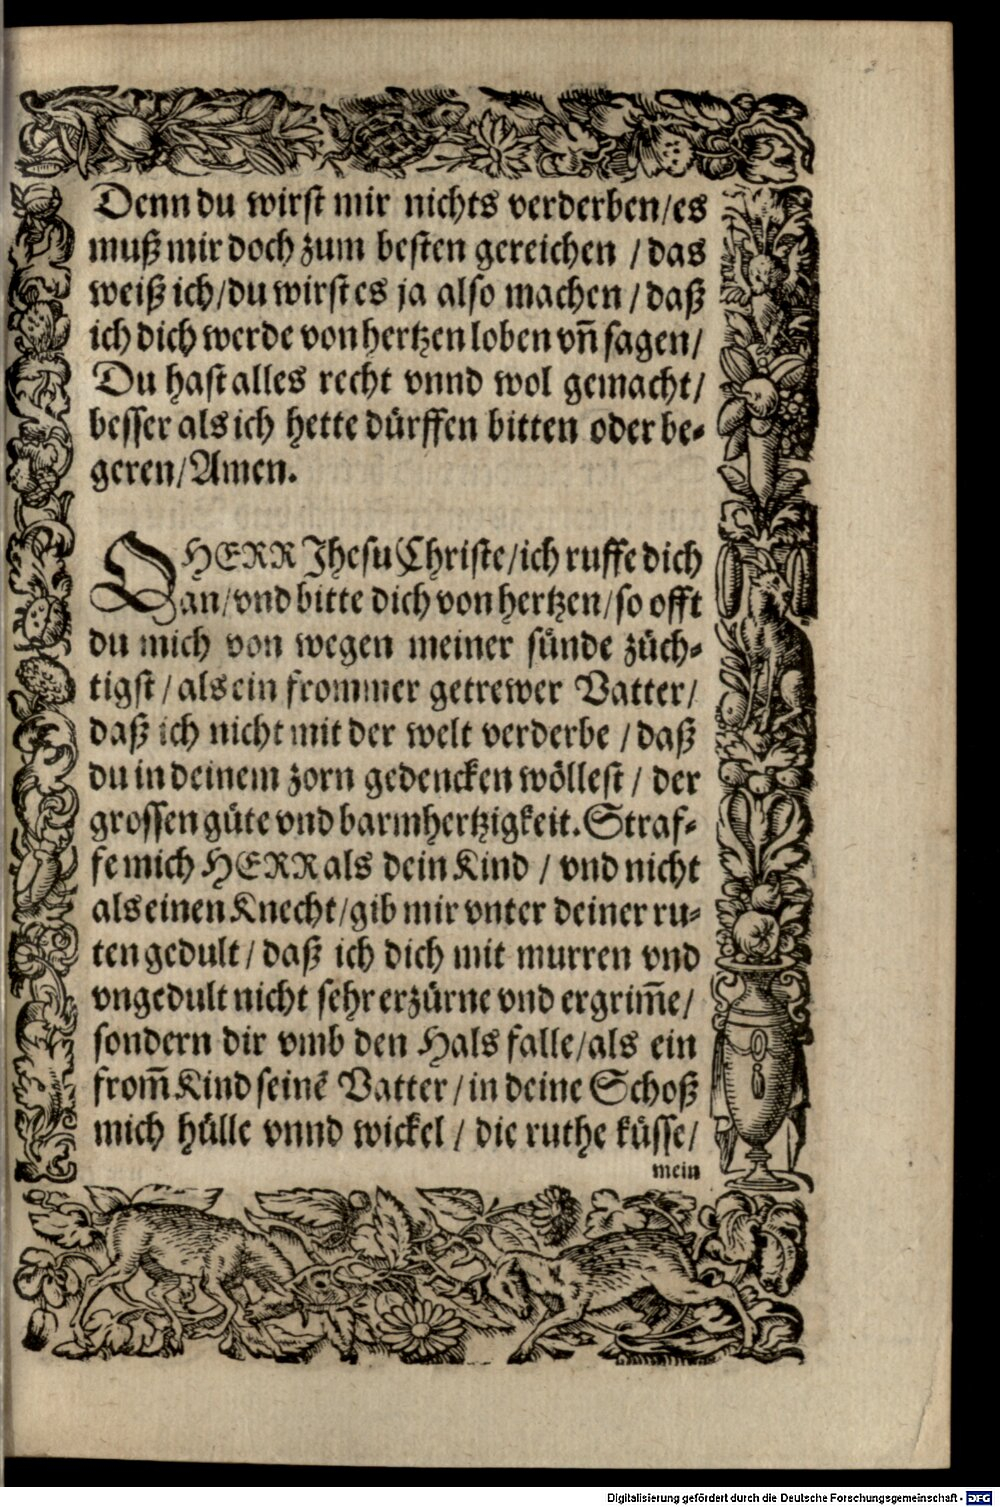 Denn du wirst mir nichts verderben/es
muß mir doch zum besten gereichen / das
weiß ich/du wirst es ja also machen / daß
ich dich werde von hertzen loben vn̄ sagen/
Du hast alles recht vnnd wol gemacht/
besser als ich hette dürffen bitten oder be-
geren/Amen.
O HERR Jhesu Christe/ich ruffe dich
an/vnd bitte dich von hertzen/so offt
du mich von wegen meiner sünde züch-
tigst / als ein frommer getrewer Vatter/
daß ich nicht mit der welt verderbe / daß
du in deinem zorn gedencken wöllest / der
grossen güte vnd barmhertzigkeit. Straf-
fe mich HERR als dein Kind / vnd nicht
als einen Knecht/gib mir vnter deiner ru-
ten gedult / daß ich dich mit murren vnd
vngedult nicht sehr erzürne vnd ergrim̄e/
sondern dir vmb den Hals falle/als ein
from̄ Kind seinē Vatter / in deine Schoß
mich hülle vnnd wickel / die ruthe küsse/
mein
Digitalisierung gefördert durch die Deutsche Forschungsgemeinschaft - DFG